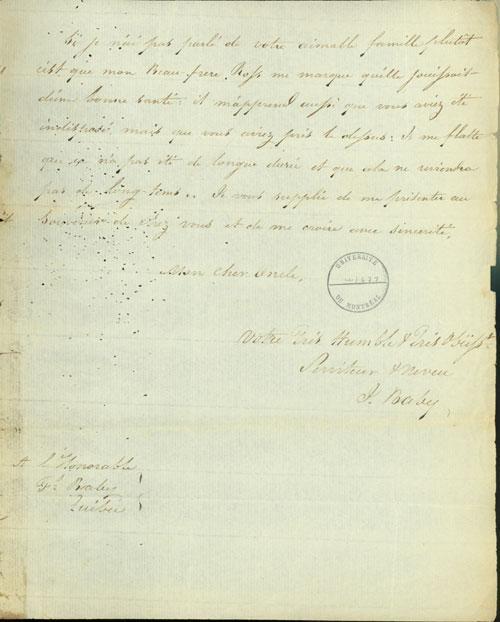 Si je n'ai pas parlé de votre aimable famille plutot
c'est que mon Beau frere Ross me marque qu'elle jouissait
d'une bonne santé: il m'apprend aussi que vous aviez été
indisposé, mais que vous aviez pris le dessus: Je me flatte
que ça n'a pas été de longue durée et que cela ne reviendra
pas de long-tems.. Je vous supplie de me présenter au
Souvenir de chez vous et de me croire avec sincerité,
Mon Cher Oncle,
UNIVERSITÉ
DE MONTRÉAL
Votre Très Humble & Très Obéisst.
Serviteur & Neveu
J. Baby
A L'Honorable
Fs. Baby
Québec